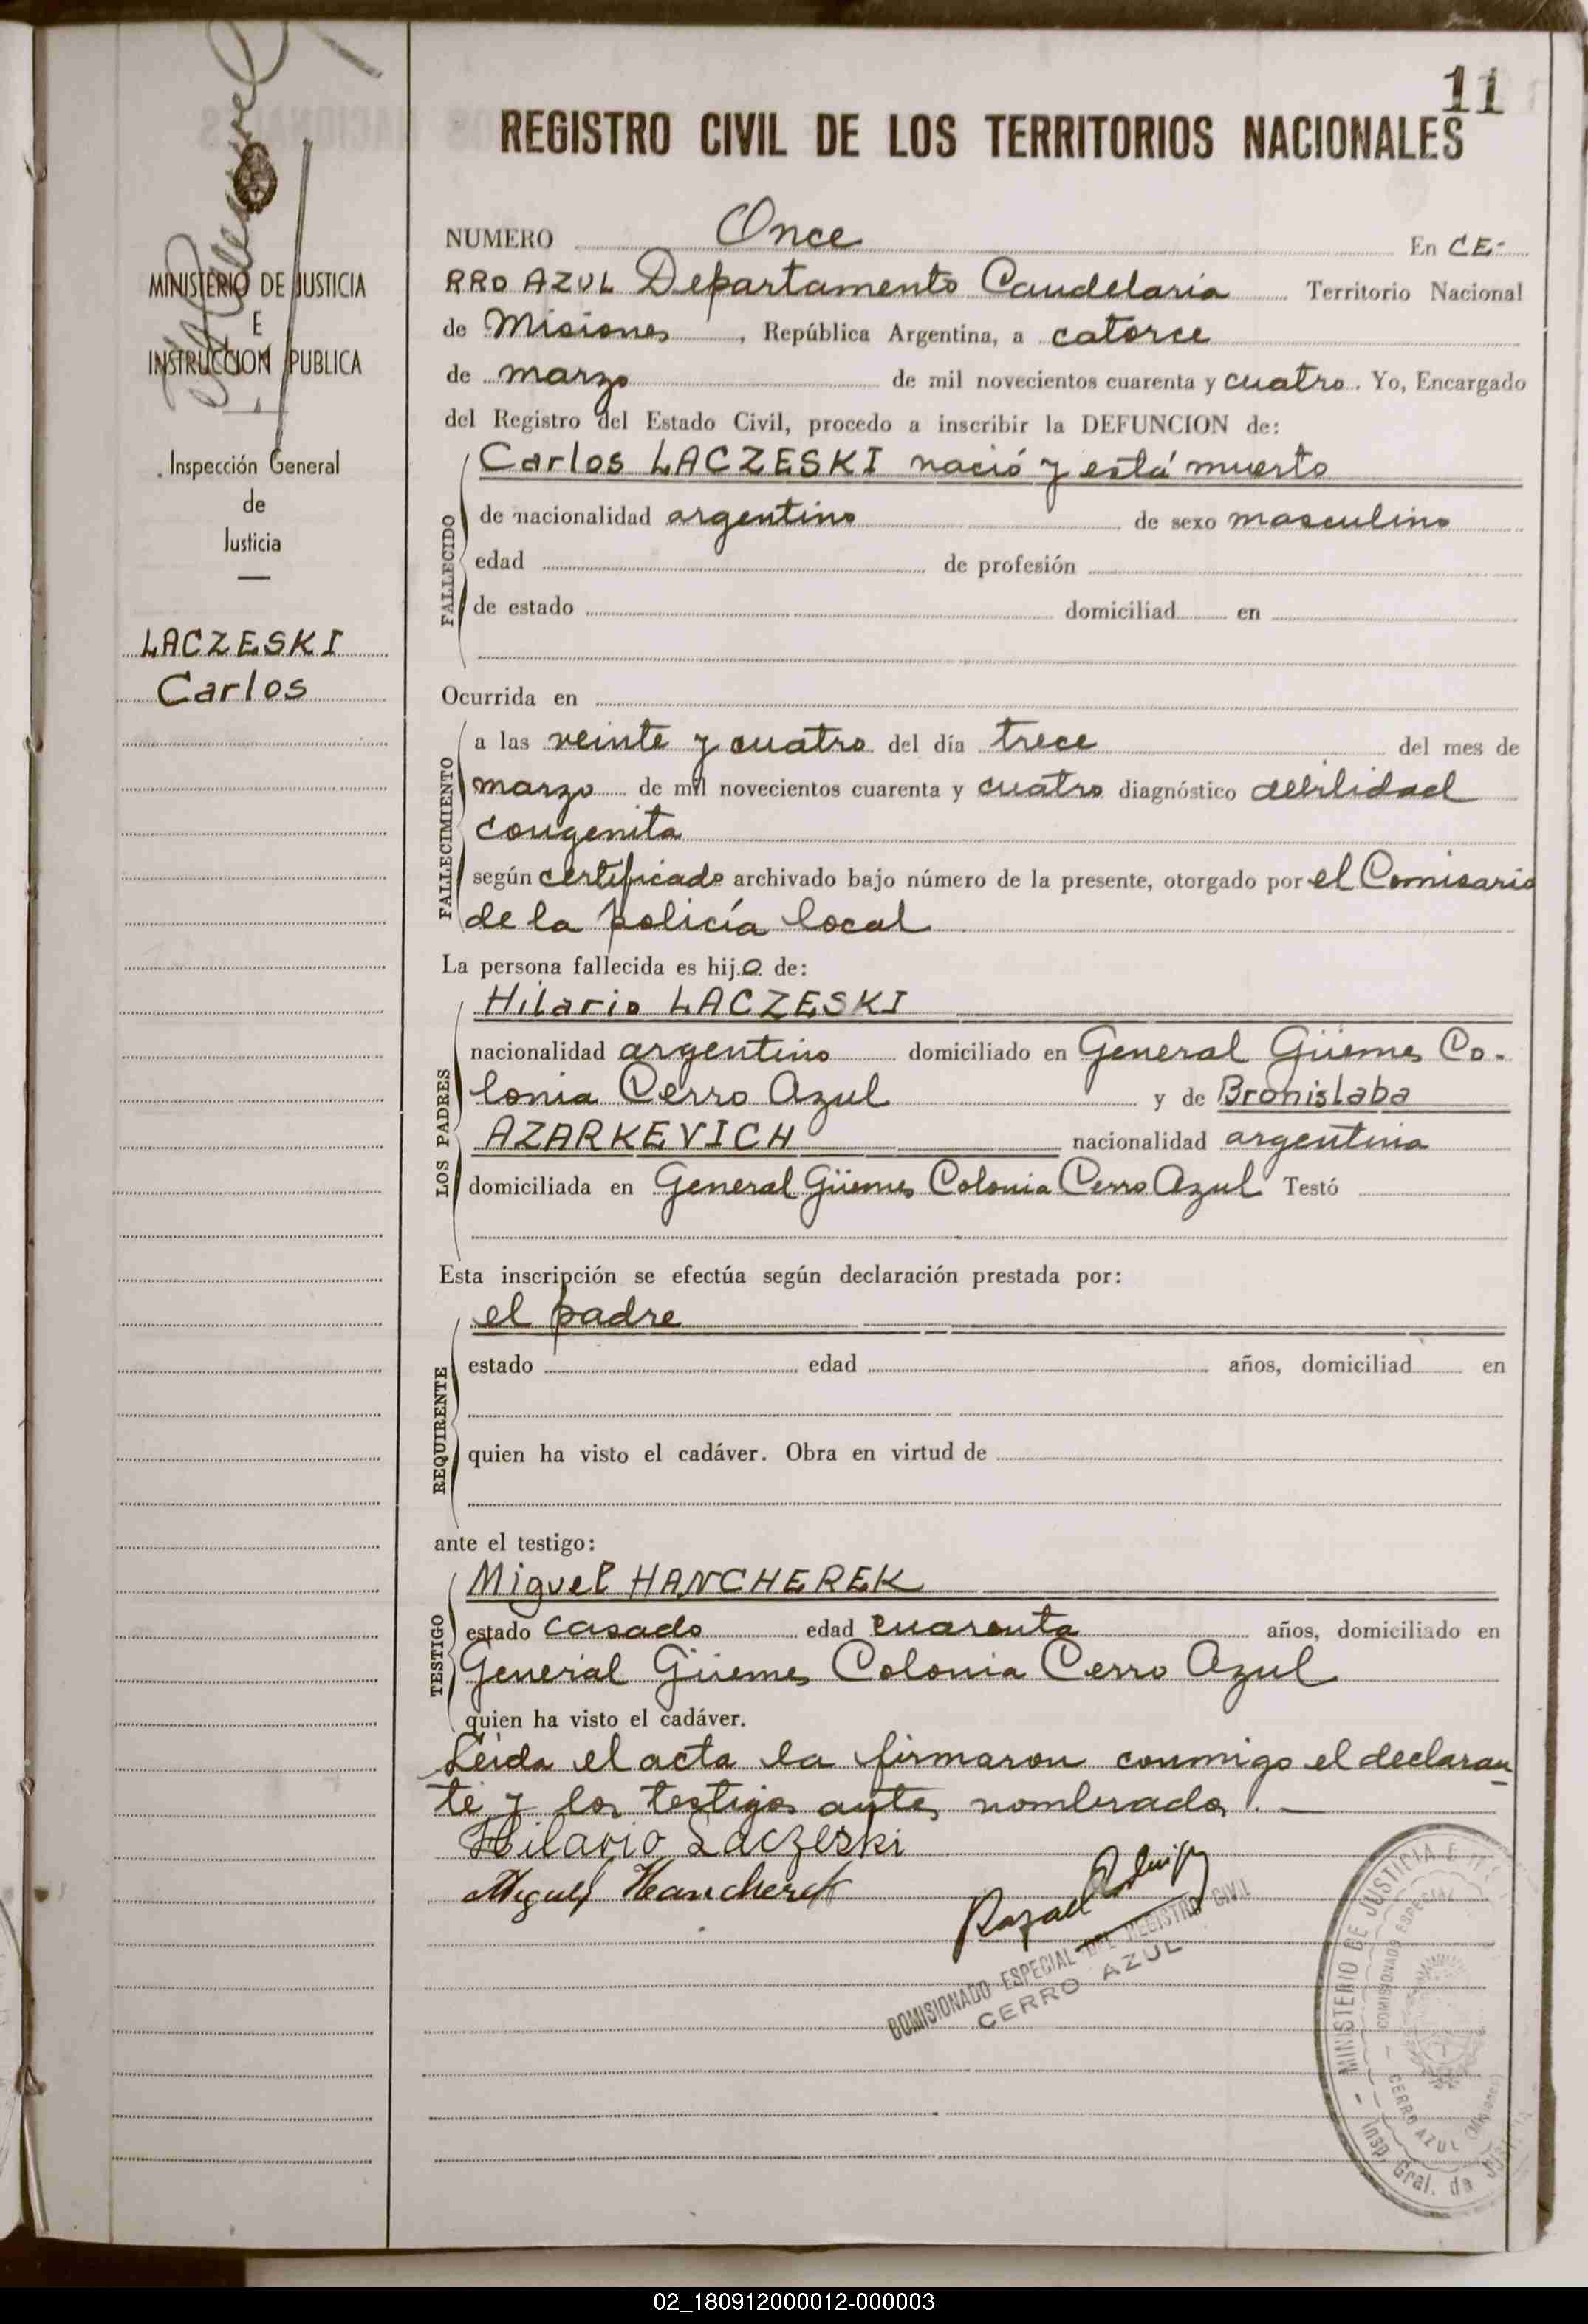 11
REGISTRO CIVIL DE LOS TERRITORIOS NACIONALES
MINISTERIO DE JUSTICIA
E
INSTRUCCION PUBLICA
Inspección General
de
Justicia
LACZESKI
Carlos
NUMERO Once En CE-
RRO AZUL Departamento Candelaria Territorio Nacional
de Misiones, República Argentina, a catorce
de marzo de mil novecientos cuarenta y cuatro. Yo, Encargado
del Registro del Estado Civil, procedo a inscribir la DEFUNCION de:
FALLECIDO
Carlos LACZESKI nació y está muerto
de nacionalidad argentino de sexo masculino
edad de profesión
de estado domiciliad en
Ocurrida en
FALLECIMIENTO
a las veinte y cuatro del día trece del mes de
marzo de mil novecientos cuarenta y cuatro diagnóstico debilidad
congenita
según certificado archivado bajo número de la presente, otorgado por el Comisario
de la policía local
La persona fallecida es hijo de:
LOS PADRES
Hilario LACZESKI
nacionalidad argentino domiciliado en General Güemes Co-
lonia Cerro Azul y de Bronislaba
AZARKEVICH nacionalidad argentina
domiciliada en General Güemes Colonia Cerro Azul Testó
Esta inscripción se efectúa según declaración prestada por:
REQUIRENTE
el padre
estado edad años, domiciliad en
quien ha visto el cadáver. Obra en virtud de
ante el testigo:
TESTIGO
Miguel HANCHEREK
estado casado edad cuarenta años, domiciliado en
General Güemes Colonia Cerro Azul
quien ha visto el cadáver.
Leída el acta la firmaron conmigo el declaran-
te y los testigos antes nombrados.
Hilario Laczeski
Miguel Hancherek
COMISIONADO ESPECIAL DEL REGISTRO CIVIL
CERRO AZUL
MINISTERIO DE JUSTICIA E
COMISIONADO ESPECIAL
CERRO AZUL (Misiones)
Insp. Gral. de
02_180912000012-000003